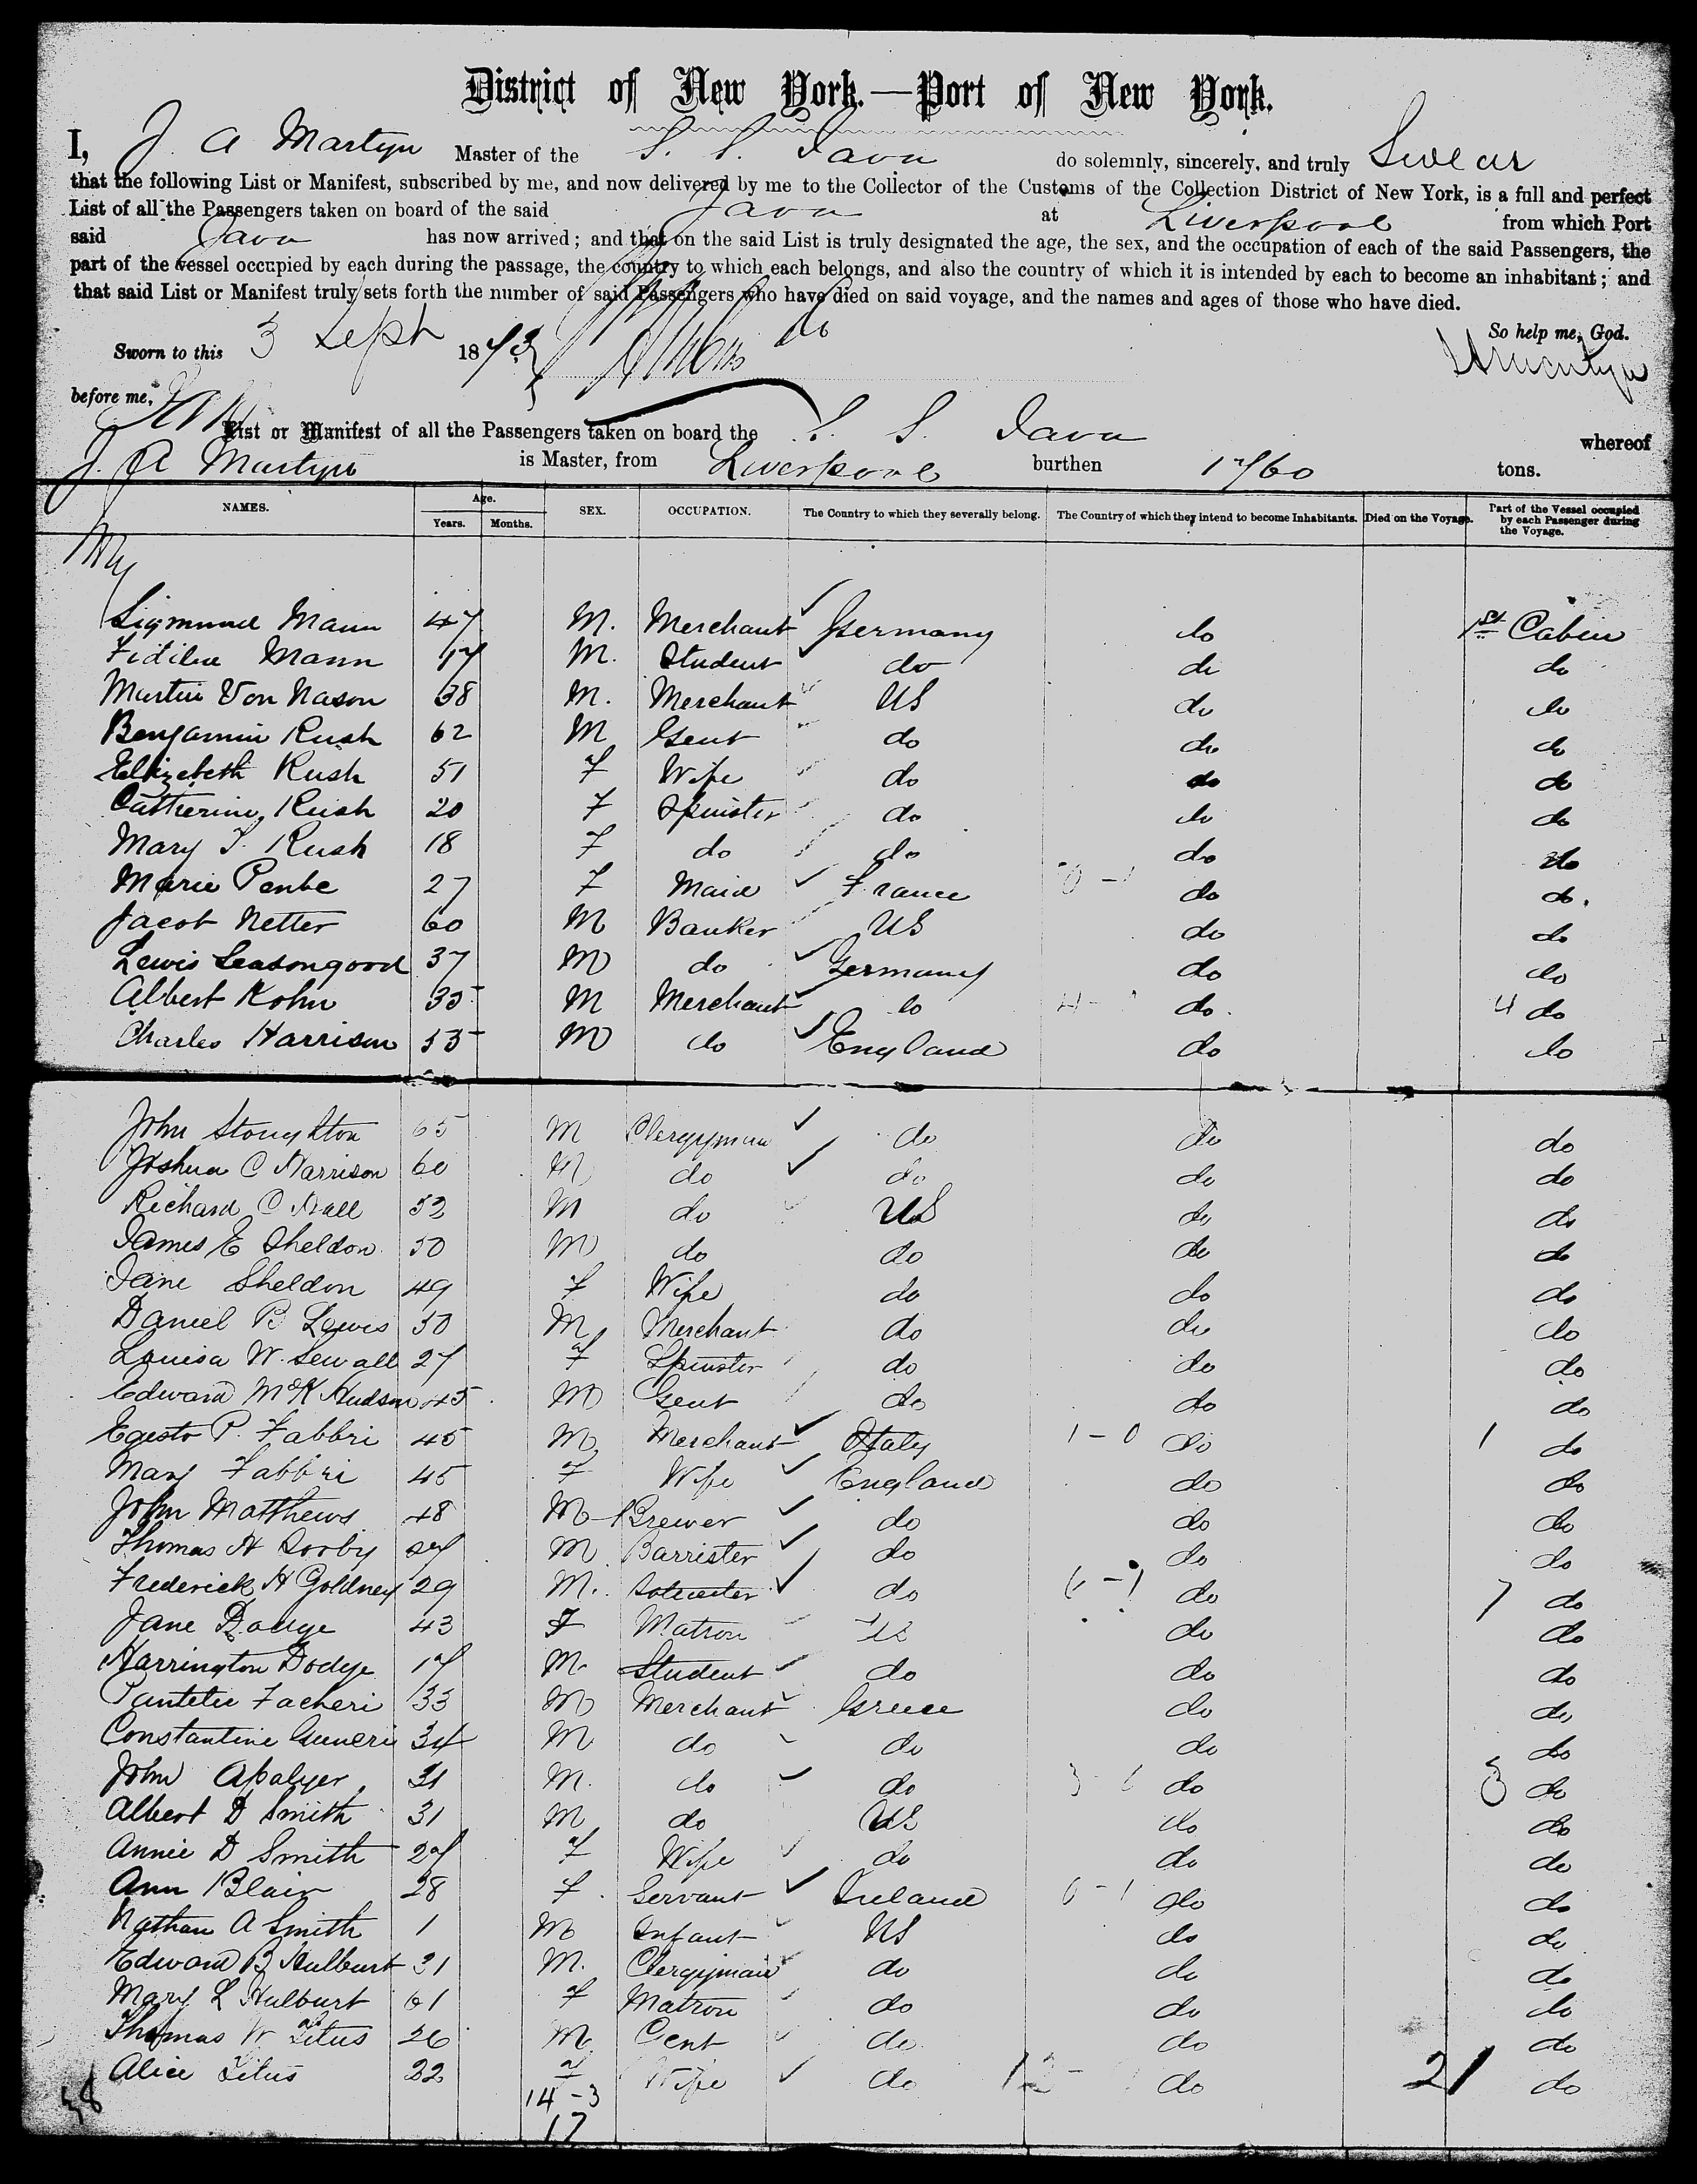 District of New York.—Port of New York.
I, J. A Martyn Master of the S. S. Java do solemnly, sincerely, and truly Swear
that the following List or Manifest, subscribed by me, and now delivered by me to the Collector of the Customs of the Collection District of New York, is a full and perfect
List of all the Passengers taken on board of the said Java at Liverpool from which Port
said Java has now arrived; and that on the said List is truly designated the age, the sex, and the occupation of each of the said Passengers, the
part of the vessel occupied by each during the passage, the country to which each belongs, and also the country of which it is intended by each to become an inhabitant; and
that said List or Manifest truly sets forth the number of said Passengers who have died on said voyage, and the names and ages of those who have died.
So help me, God.
Sworn to this 3 Sept 1873
before me,
List or Manifest of all the Passengers taken on board the S. S. Java whereof
J. A Martyn is Master, from Liverpool burthen 1760 tons.
NAMES. Age. Years. Months. SEX. OCCUPATION. The Country to which they severally belong. The Country of which they intend to become Inhabitants. Died on the Voyage. Part of the Vessel occupied by each Passenger during the Voyage.
Sigmund Mann 47 M. Merchant Germany do 1st Cabin
Mann 17 M. Student do do do
Martin Von Nason 38 M. Merchant US do do
Benjamin Rush 62 M Gent do do do
Elizebeth Rush 51 F Wife do do do
Catherine Rush 20 F Spinster do do do
Mary T. Rush 18 F do do do do
Marie Penbe 27 F Maid France do do.
Jacob Netter 60 M Banker US do do
Lewis Seasongood 37 M do Germany do do
Albert Kohn 35 M Merchant do do 4 do
Charles Harrison 55 M do England do do
John Stoughton 65 M Clergyman do do do
Joshua C Harrison 60 M do do do do
Richard C Hall 52 M do US do do
James E Sheldon 50 M do do do do
Jane Sheldon 49 F Wife do do do
Daniel B Lewis 50 M Merchant do do do
Louisa W. Sewall 27 F Spinster do do do
Edward McK Hudson 45 M Gent do do do
Egesto P. Fabbri 45 M Merchant Italy 1-0 do 1 do
Mary Fabbri 45 F Wife England do do
John Matthews 48 M Brewer do do do
Thomas H Sorby 27 M Barrister do do do
Frederick H Goldney 29 M. do 6-1 do 7 do
Jane Dodge 43 F Matron US do do
Harrington Dodge 17 M Student do do do
Facheri 33 M Merchant Greece do do
Constantine 34 M do do do do
John 31 M. do do do 3 do
Albert D Smith 31 M do US do do
Annie D Smith 27 F Wife do do do
Ann Blair 28 F. Servant Ireland 0-1 do do
Nathan A Smith 1 M Infant US do do
Edward B Hulburt 31 M. Clergyman do do do
Mary L Hulburt 61 F Matron do do do
Thomas W Titus 26 M Gent do do do
Alice Titus 22 F Wife do do 21 do
38 14-3
17